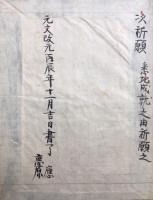 次祈願 悉地成就之由祈願之
元文改元丙辰年十一月吉日書了
應